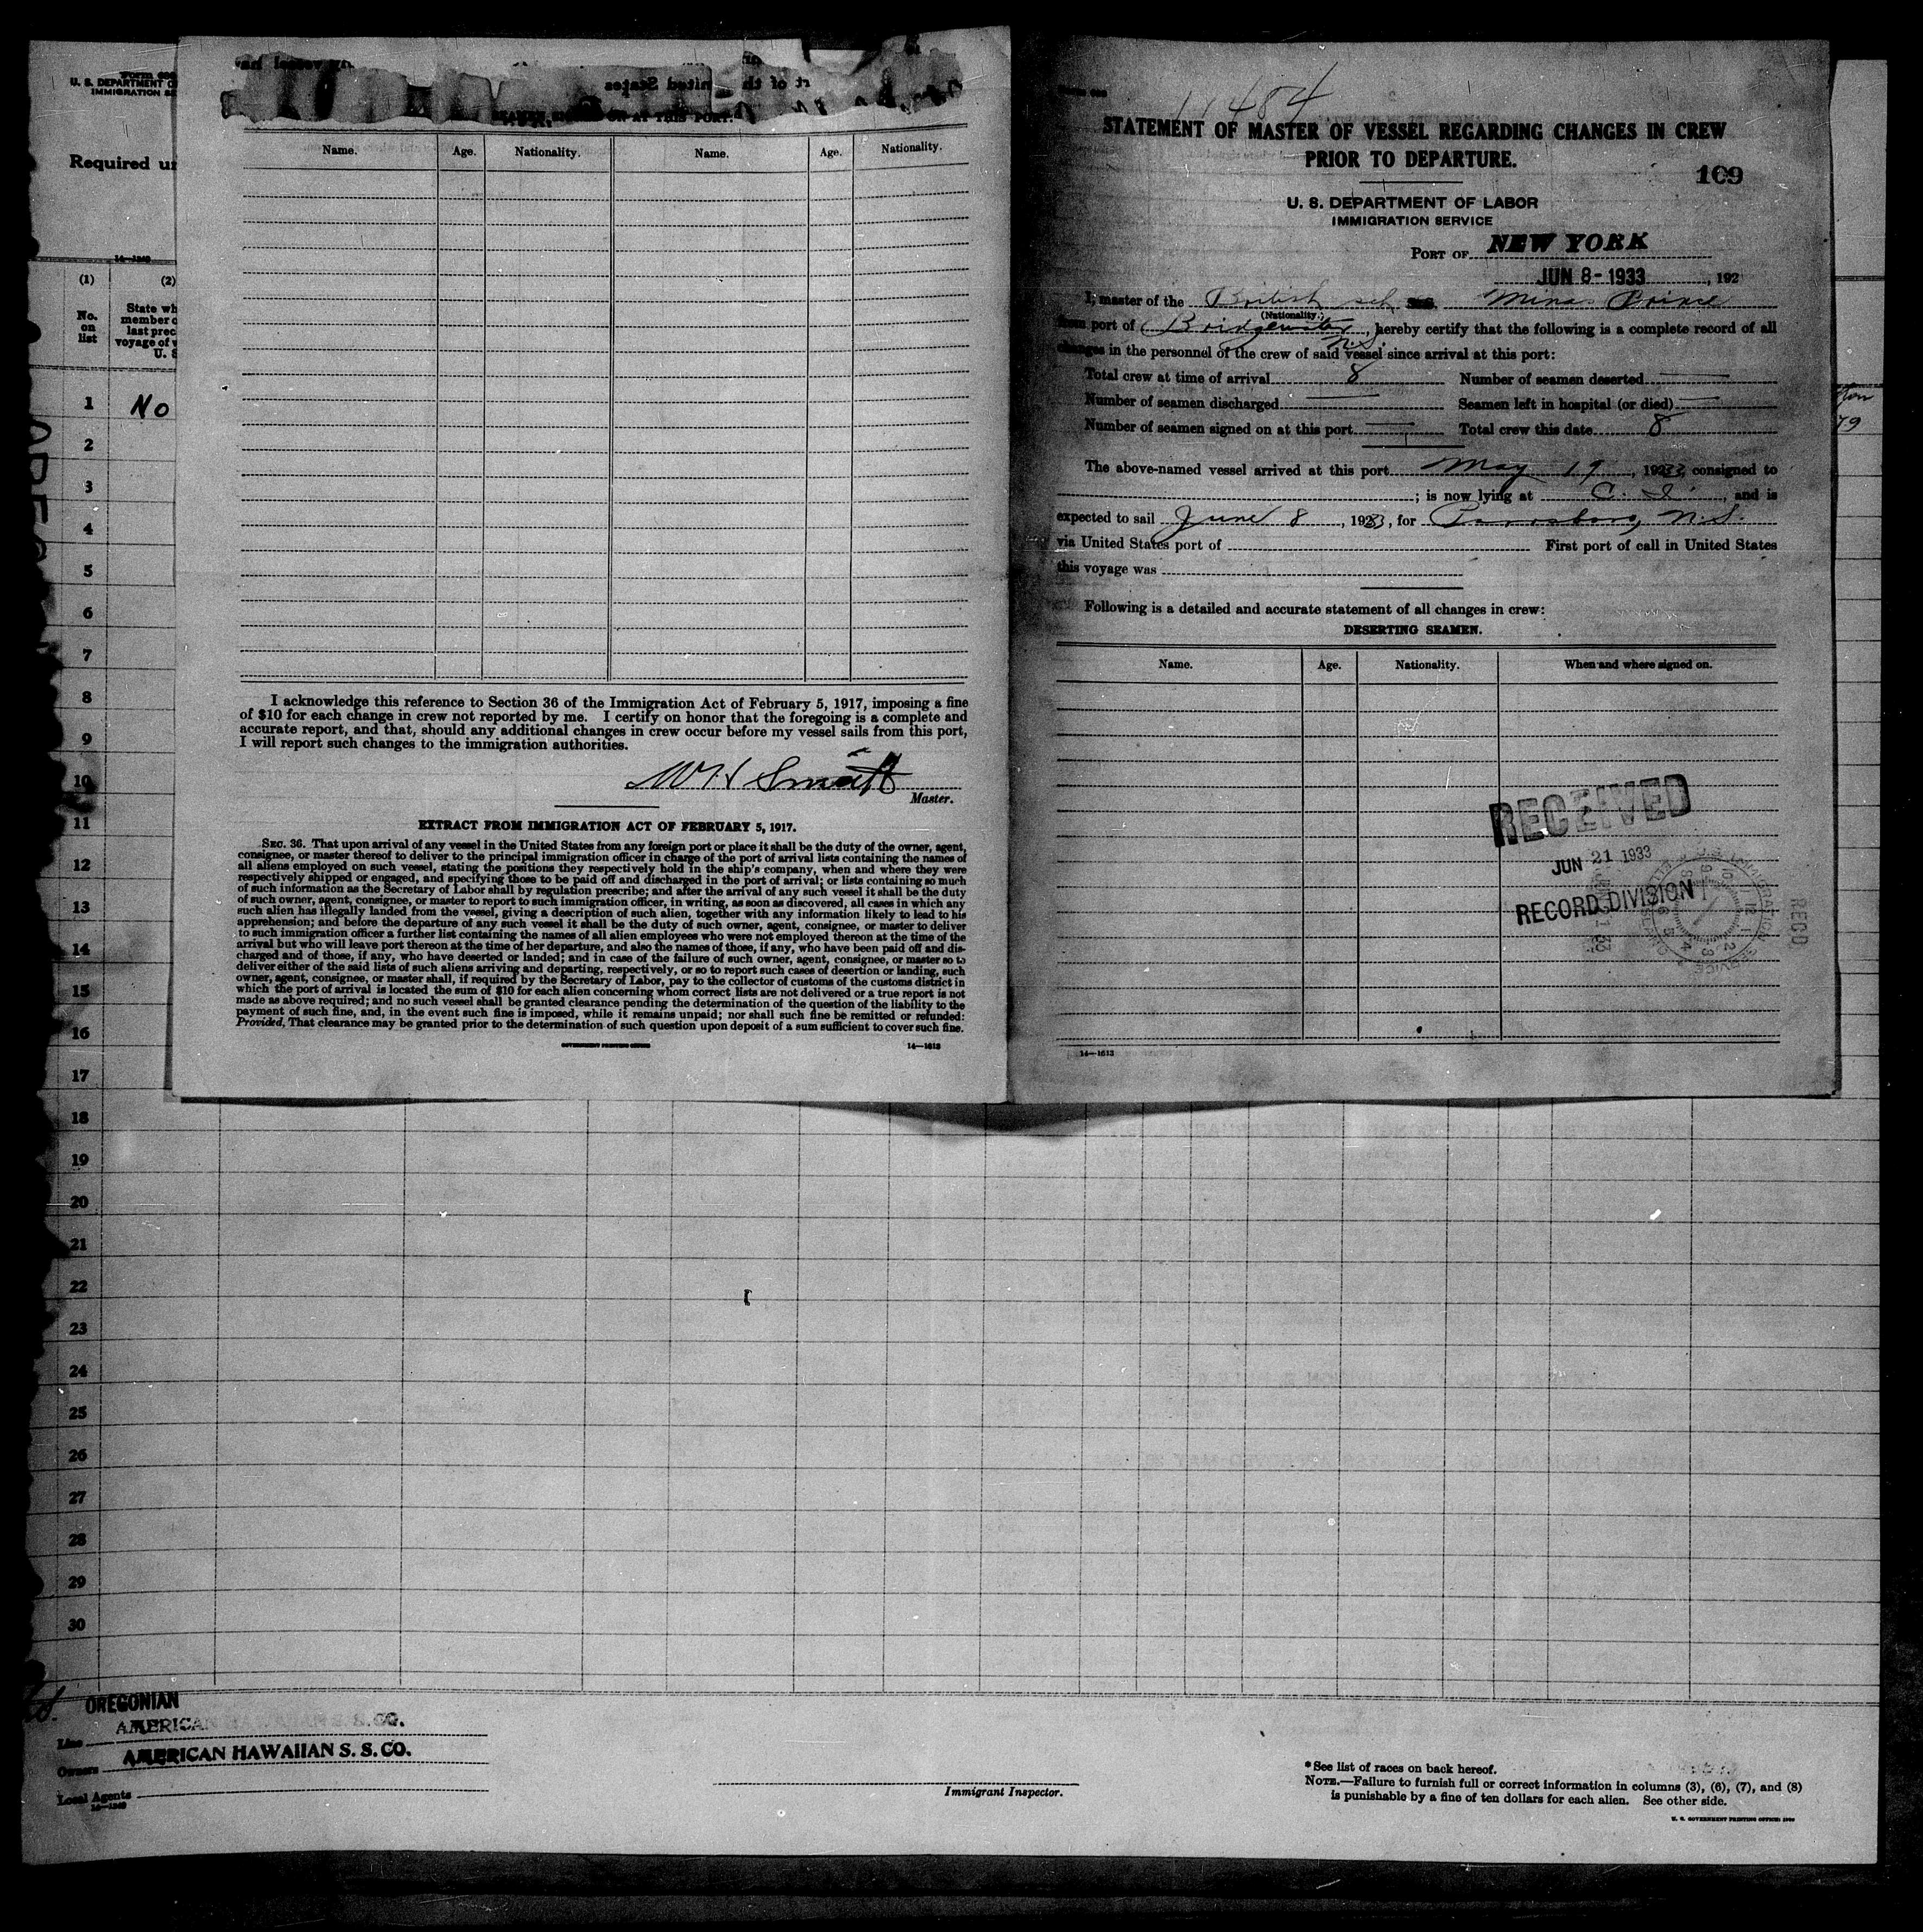 U. S. DEPARTMENT O
IMMIGRATION SE
Required un
14—1240
(1) (2)
No. on list
State wh
member o
last prec
voyage of v
U. S
1 No
2
3
4
5
6
7
8
9
10
11
12
13
14
15
16
17
18
19
20
21
22
23
24
25
26
27
28
29
30
OREGONIAN
Line AMERICAN HAWAIIAN S. S. CO.
Owners AMERICAN HAWAIIAN S. S. CO.
Local Agents
14—1240
Immigrant Inspector.
* See list of races on back hereof.
NOTE.—Failure to furnish full or correct information in columns (3), (6), (7), and (8)
is punishable by a fine of ten dollars for each alien. See other side.
U. S. GOVERNMENT PRINTING OFFICE:
ON AT THIS PORT.
Name. Age. Nationality. Name. Age. Nationality.
I acknowledge this reference to Section 36 of the Immigration Act of February 5, 1917, imposing a fine
of $10 for each change in crew not reported by me. I certify on honor that the foregoing is a complete and
accurate report, and that, should any additional changes in crew occur before my vessel sails from this port,
I will report such changes to the immigration authorities.
W H Smith
Master.
EXTRACT FROM IMMIGRATION ACT OF FEBRUARY 5, 1917.
SEC. 36. That upon arrival of any vessel in the United States from any foreign port or place it shall be the duty of the owner, agent,
consignee, or master thereof to deliver to the principal immigration officer in charge of the port of arrival lists containing the names of
all aliens employed on such vessel, stating the positions they respectively hold in the ship's company, when and where they were
respectively shipped or engaged, and specifying those to be paid off and discharged in the port of arrival; or lists containing so much
of such information as the Secretary of Labor shall by regulation prescribe; and after the arrival of any such vessel it shall be the duty
of such owner, agent, consignee, or master to report to such immigration officer, in writing, as soon as discovered, all cases in which any
such alien has illegally landed from the vessel, giving a description of such alien, together with any information likely to lead to his
apprehension; and before the departure of any such vessel it shall be the duty of such owner, agent, consignee, or master to deliver
to such immigration officer a further list containing the names of all alien employees who were not employed thereon at the time of the
arrival but who will leave port thereon at the time of her departure, and also the names of those, if any, who have been paid off and dis-
charged and of those, if any, who have deserted or landed; and in case of the failure of such owner, agent, consignee, or master so to
deliver either of the said lists of such aliens arriving and departing, respectively, or so to report such cases of desertion or landing, such
owner, agent, consignee, or master shall, if required by the Secretary of Labor, pay to the collector of customs of the customs district in
which the port of arrival is located the sum of $10 for each alien concerning whom correct lists are not delivered or a true report is not
made as above required; and no such vessel shall be granted clearance pending the determination of the question of the liability to the
payment of such fine, and, in the event such fine is imposed, while it remains unpaid; nor shall such fine be remitted or refunded:
Provided, That clearance may be granted prior to the determination of such question upon deposit of a sum sufficient to cover such fine.
GOVERNMENT PRINTING OFFICE 14—1613
11484
STATEMENT OF MASTER OF VESSEL REGARDING CHANGES IN CREW
PRIOR TO DEPARTURE.
109
U. S. DEPARTMENT OF LABOR
IMMIGRATION SERVICE
PORT OF NEW YORK
JUN 8 - 1933, 192
I, master of the British sch Minas Prince
(Nationality.)
from port of Bridgewater N.S., hereby certify that the following is a complete record of all
changes in the personnel of the crew of said vessel since arrival at this port:
Total crew at time of arrival 8 Number of seamen deserted —
Number of seamen discharged — Seamen left in hospital (or died) —
Number of seamen signed on at this port — Total crew this date 8
The above-named vessel arrived at this port May 19, 1933, consigned to
; is now lying at C. I., and is
expected to sail June 8, 1933, for Parrsboro, N.S.
via United States port of First port of call in United States
this voyage was
Following is a detailed and accurate statement of all changes in crew:
DESERTING SEAMEN.
Name. Age. Nationality. When and where signed on.
RECEIVED
JUN 21 1933
RECORD DIVISION
REC'D
14—1613